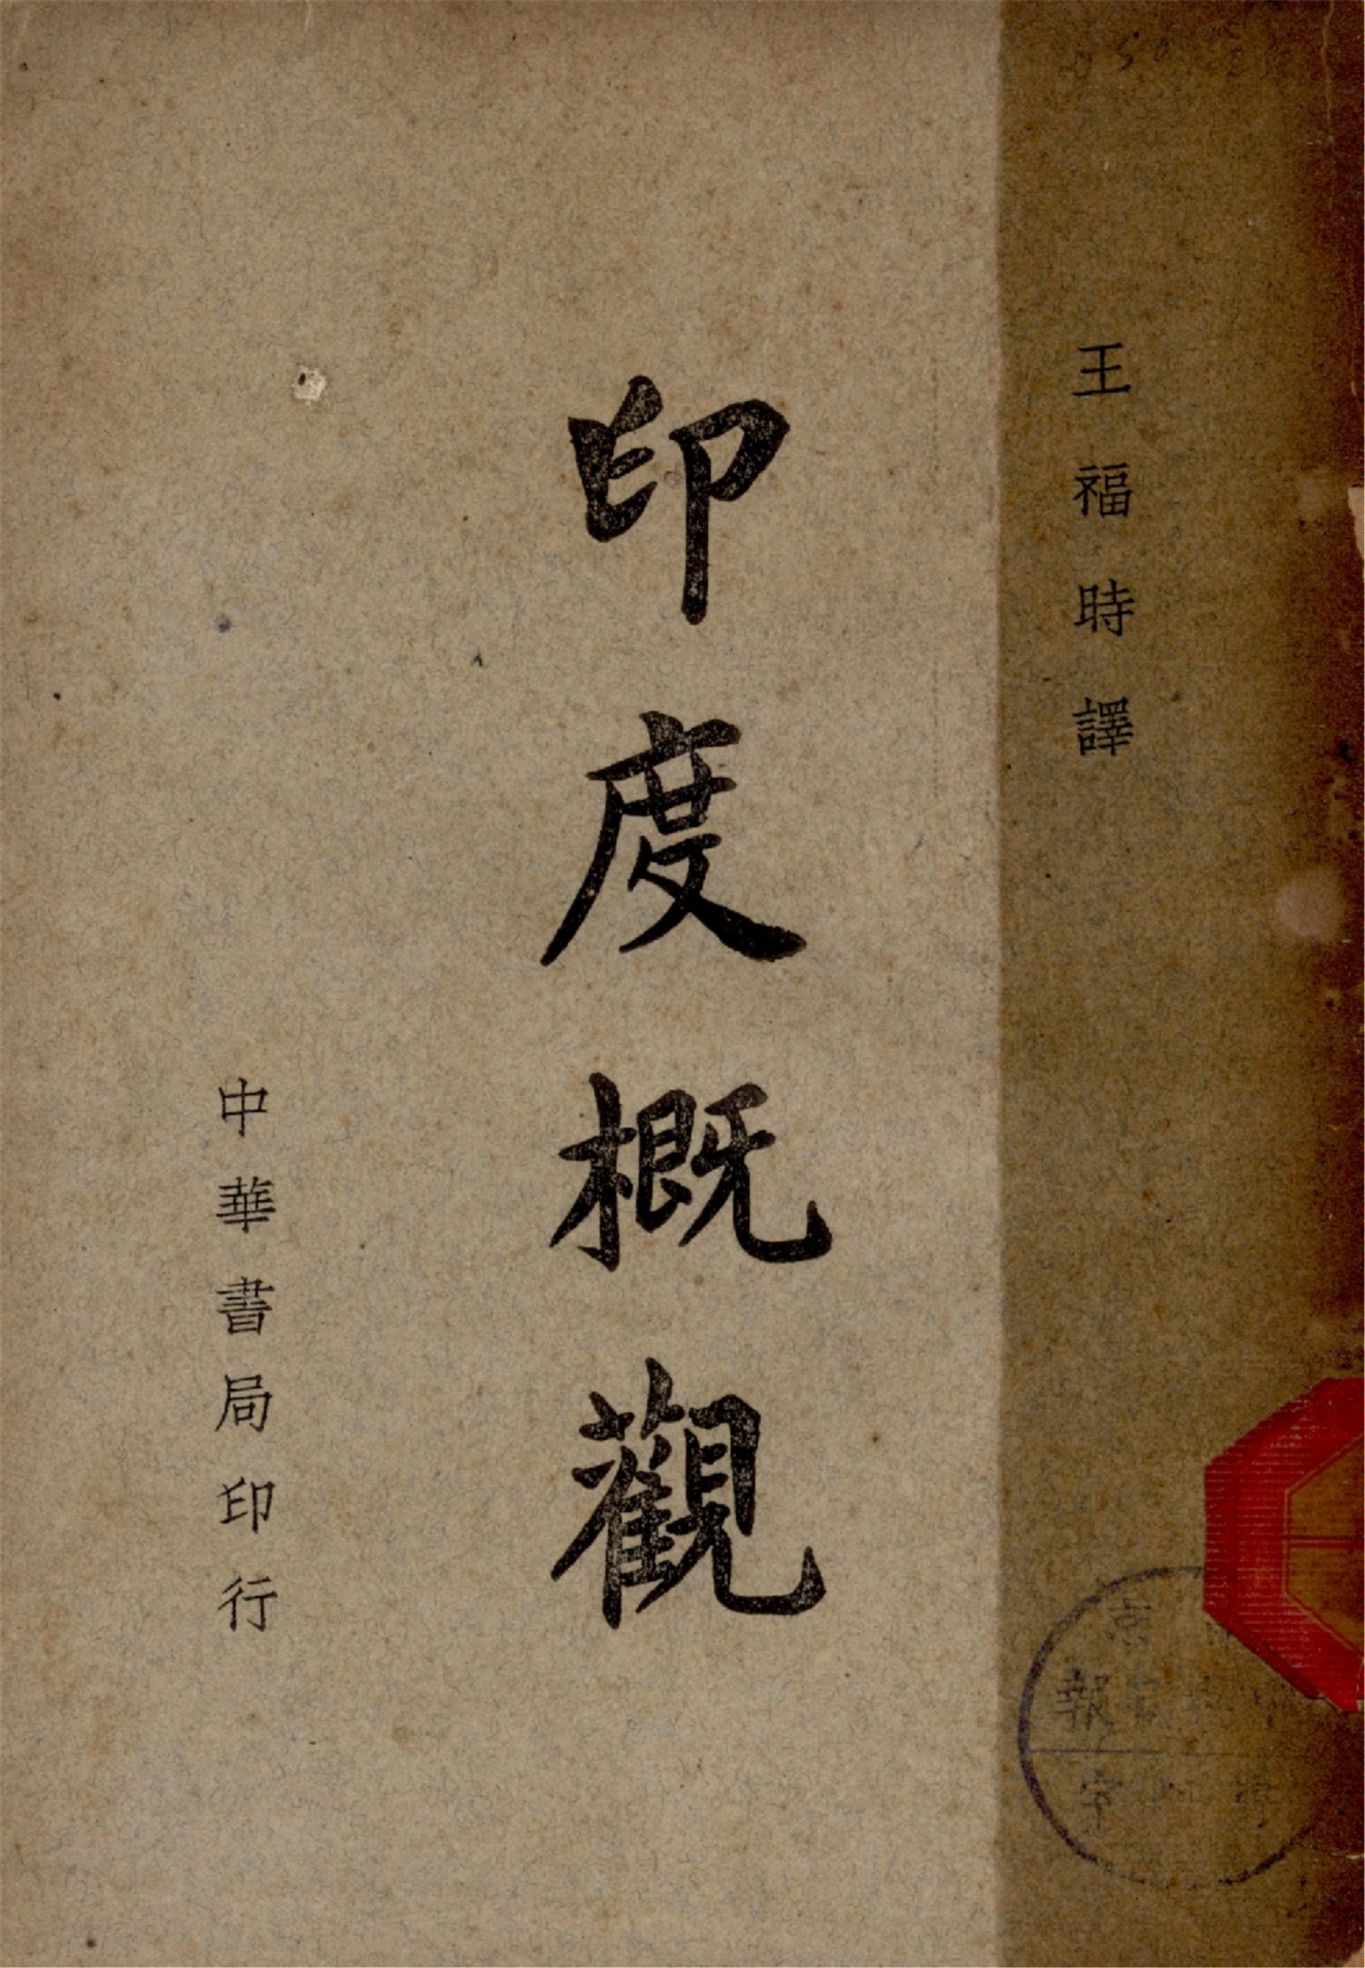 王福時譯
印度概觀
中華書局印行